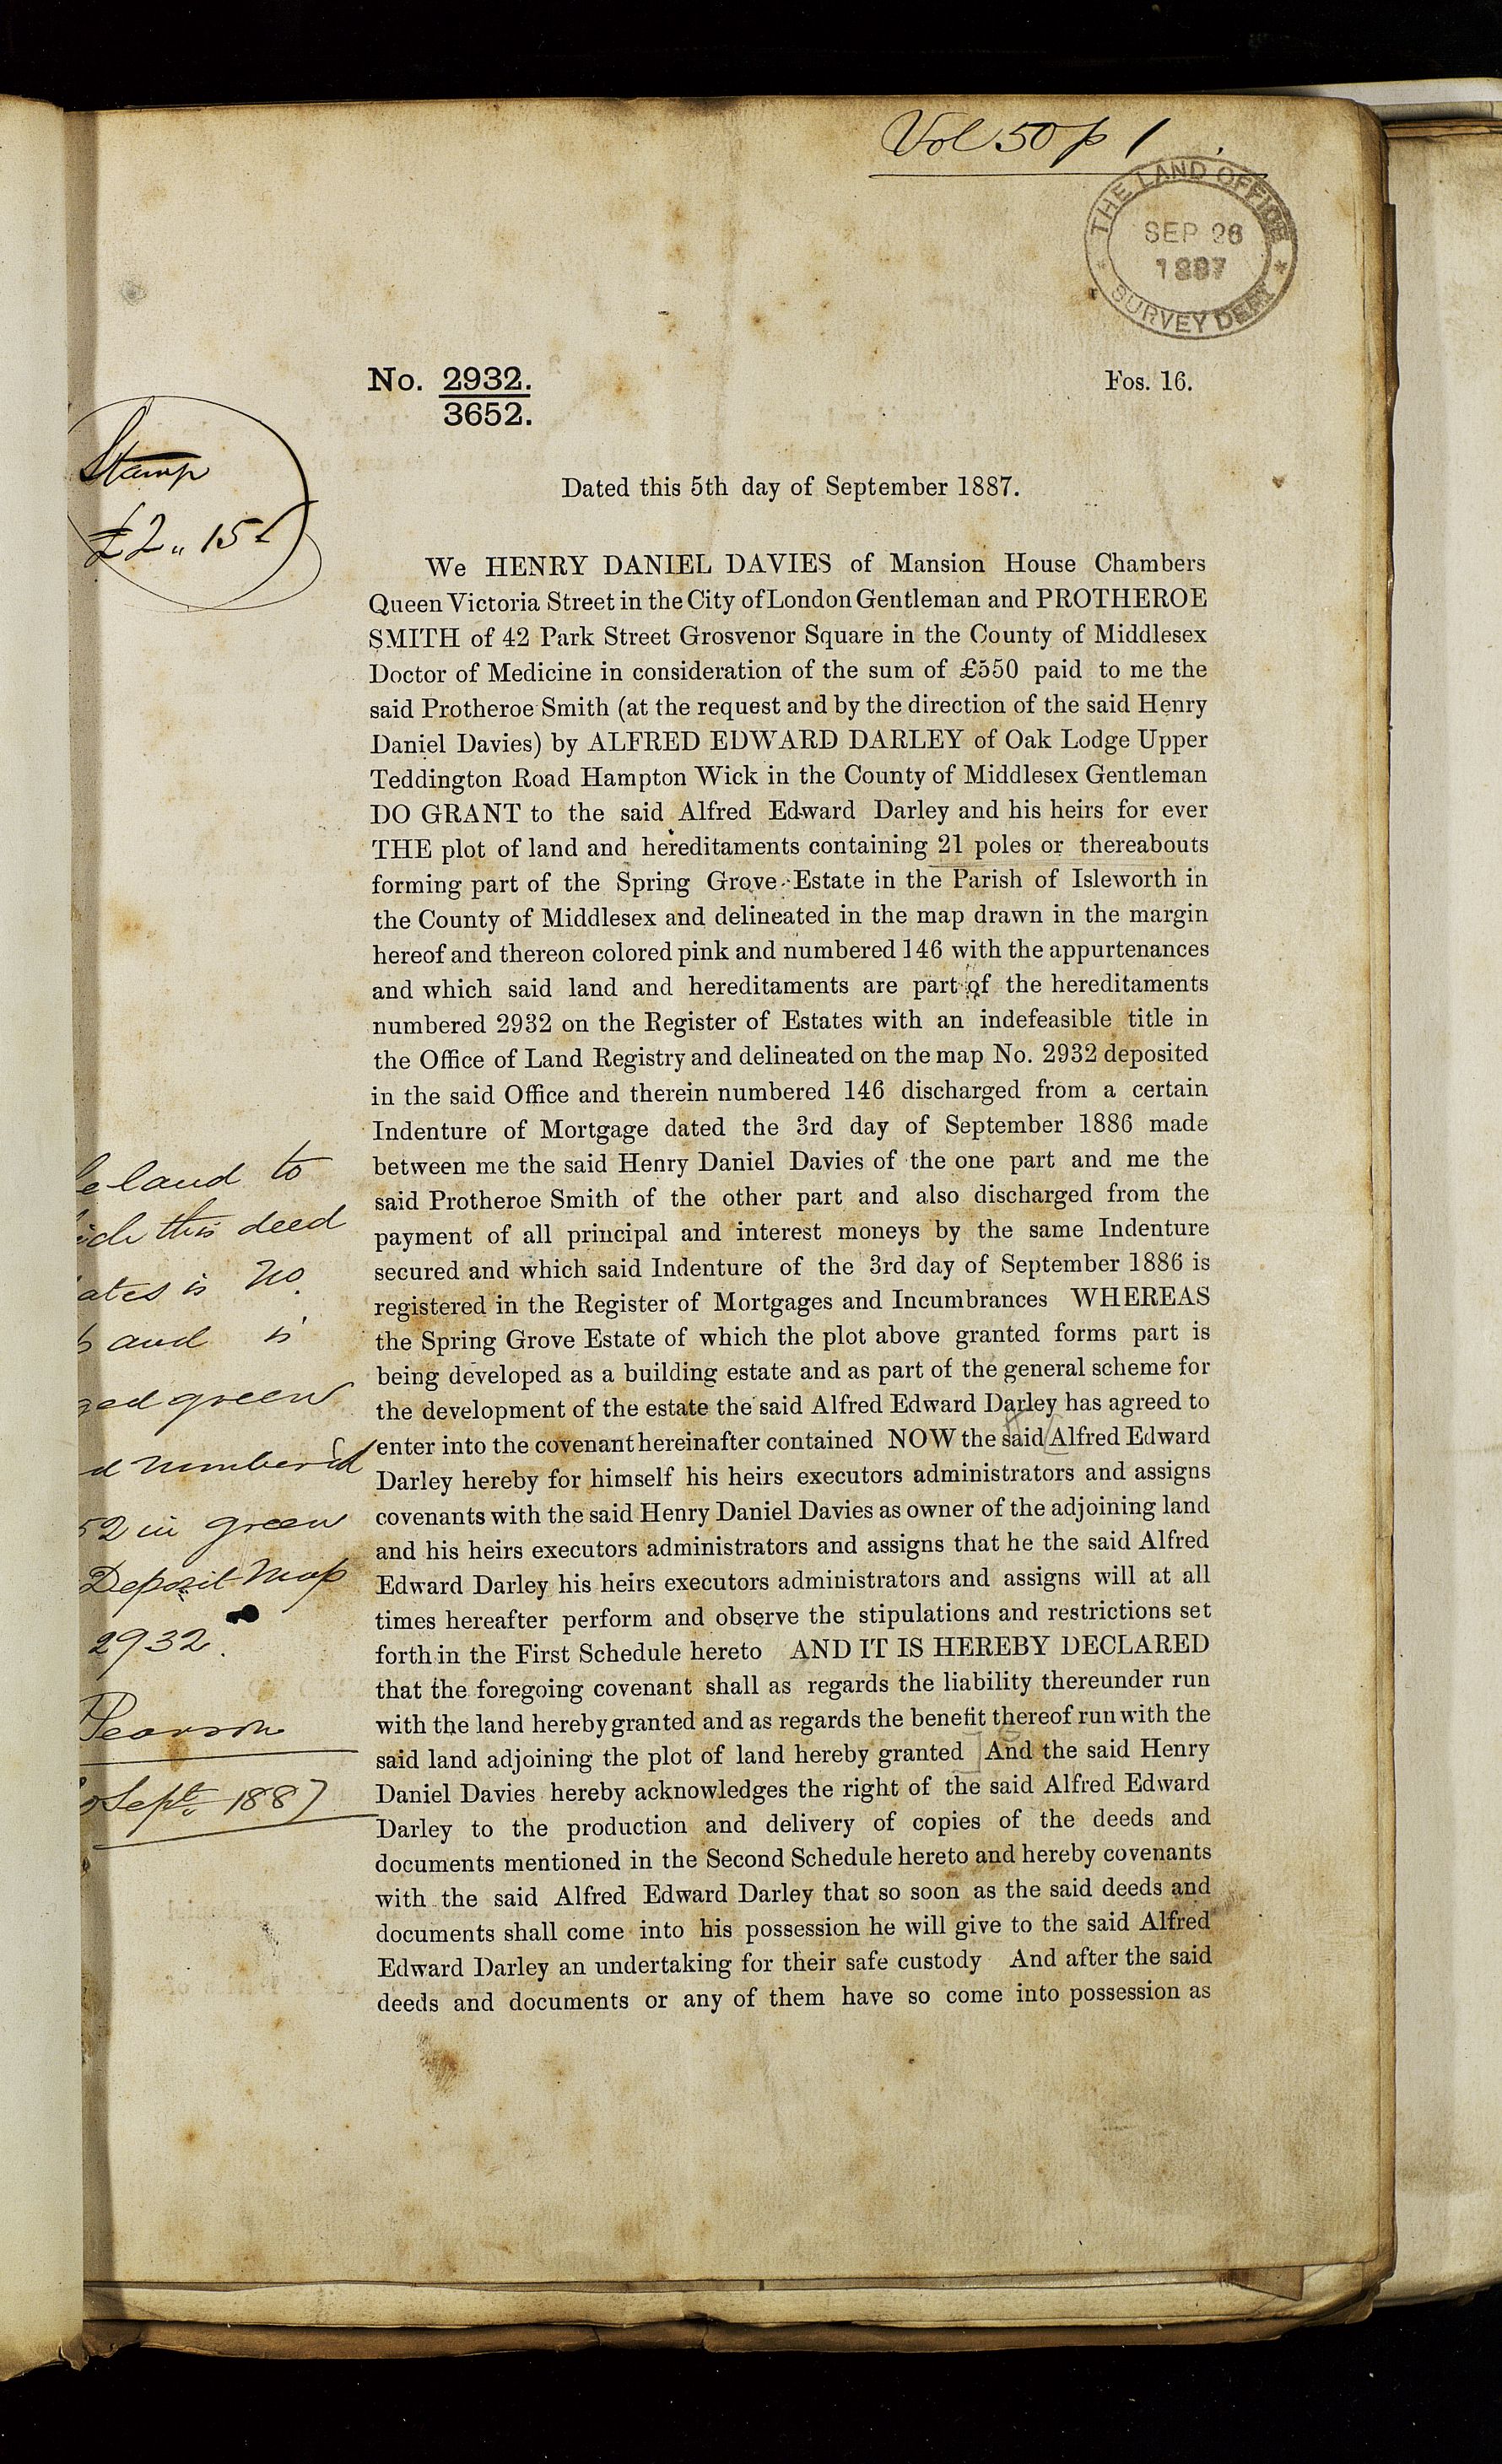 Vol 50 p 1
THE LAND OFFICE
SEP 26
1887
SURVEY DEPT
No. 2932.
3652.
Fos. 16.
Stamp
£2 " 15s
Dated this 5th day of September 1887.
We HENRY DANIEL DAVIES of Mansion House Chambers
Queen Victoria Street in the City of London Gentleman and PROTHEROE
SMITH of 42 Park Street Grosvenor Square in the County of Middlesex
Doctor of Medicine in consideration of the sum of £550 paid to me the
said Protheroe Smith (at the request and by the direction of the said Henry
Daniel Davies) by ALFRED EDWARD DARLEY of Oak Lodge Upper
Teddington Road Hampton Wick in the County of Middlesex Gentleman
DO GRANT to the said Alfred Edward Darley and his heirs for ever
THE plot of land and hereditaments containing 21 poles or thereabouts
forming part of the Spring Grove Estate in the Parish of Isleworth in
the County of Middlesex and delineated in the map drawn in the margin
hereof and thereon colored pink and numbered 146 with the appurtenances
and which said land and hereditaments are part of the hereditaments
numbered 2932 on the Register of Estates with an indefeasible title in
the Office of Land Registry and delineated on the map No. 2932 deposited
in the said Office and therein numbered 146 discharged from a certain
Indenture of Mortgage dated the 3rd day of September 1886 made
between me the said Henry Daniel Davies of the one part and me the
said Protheroe Smith of the other part and also discharged from the
payment of all principal and interest moneys by the same Indenture
secured and which said Indenture of the 3rd day of September 1886 is
registered in the Register of Mortgages and Incumbrances WHEREAS
the Spring Grove Estate of which the plot above granted forms part is
being developed as a building estate and as part of the general scheme for
the development of the estate the said Alfred Edward Darley has agreed to
enter into the covenant hereinafter contained NOW the said Alfred Edward
Darley hereby for himself his heirs executors administrators and assigns
covenants with the said Henry Daniel Davies as owner of the adjoining land
and his heirs executors administrators and assigns that he the said Alfred
Edward Darley his heirs executors administrators and assigns will at all
times hereafter perform and observe the stipulations and restrictions set
forth in the First Schedule hereto AND IT IS HEREBY DECLARED
that the foregoing covenant shall as regards the liability thereunder run
with the land hereby granted and as regards the benefit thereof run with the
said land adjoining the plot of land hereby granted And the said Henry
Daniel Davies hereby acknowledges the right of the said Alfred Edward
Darley to the production and delivery of copies of the deeds and
documents mentioned in the Second Schedule hereto and hereby covenants
with the said Alfred Edward Darley that so soon as the said deeds and
documents shall come into his possession he will give to the said Alfred
Edward Darley an undertaking for their safe custody And after the said
deeds and documents or any of them have so come into possession as
land to
this deed
is No.
and is
green
numbered
in green
Deposit Map
2932.
Pearson
Sept. 1887